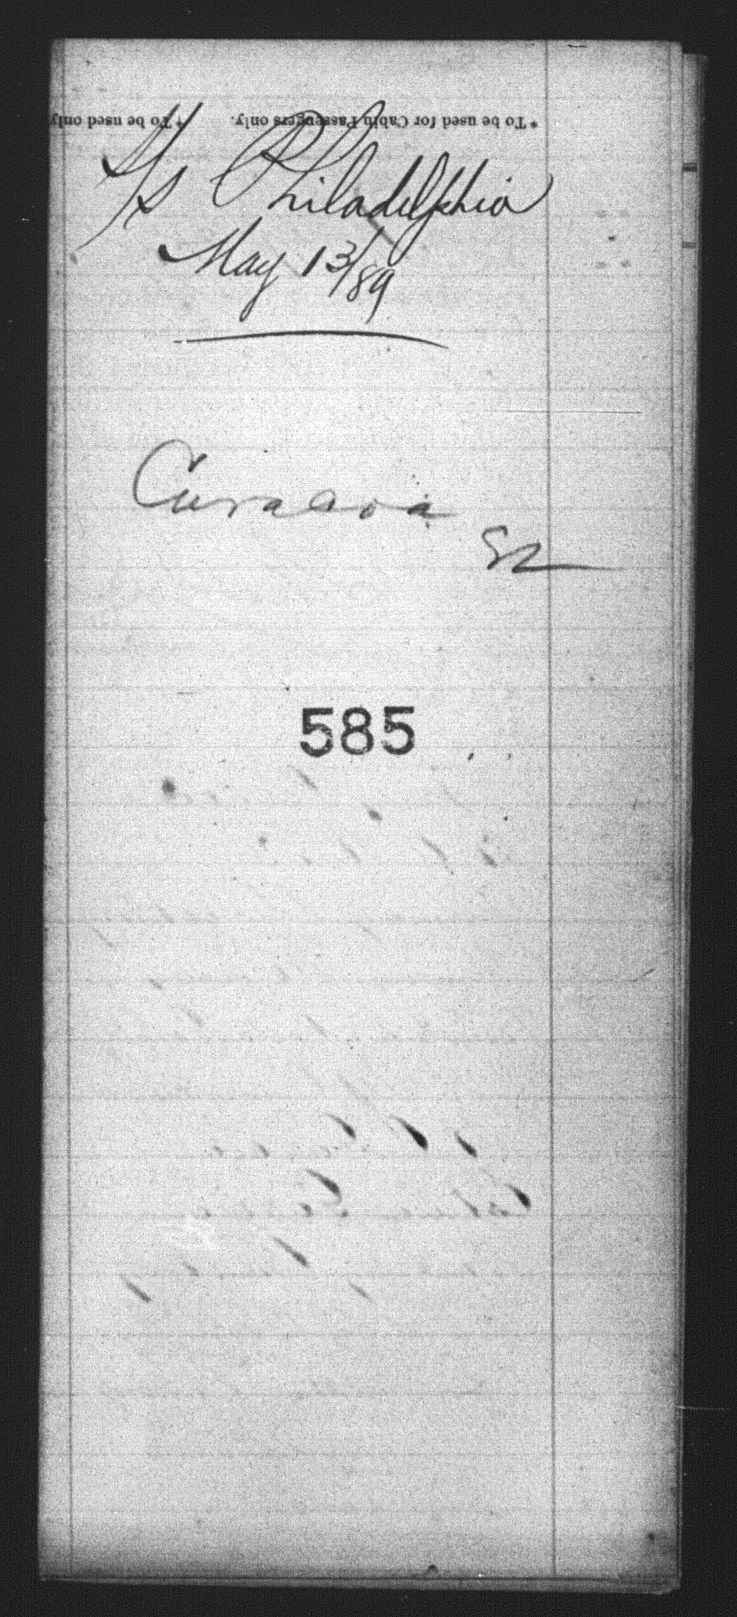 * To be used for Cabin Passengers only.
† To be used only
S/S Philadelphia
May 13/89
Curacoa
585